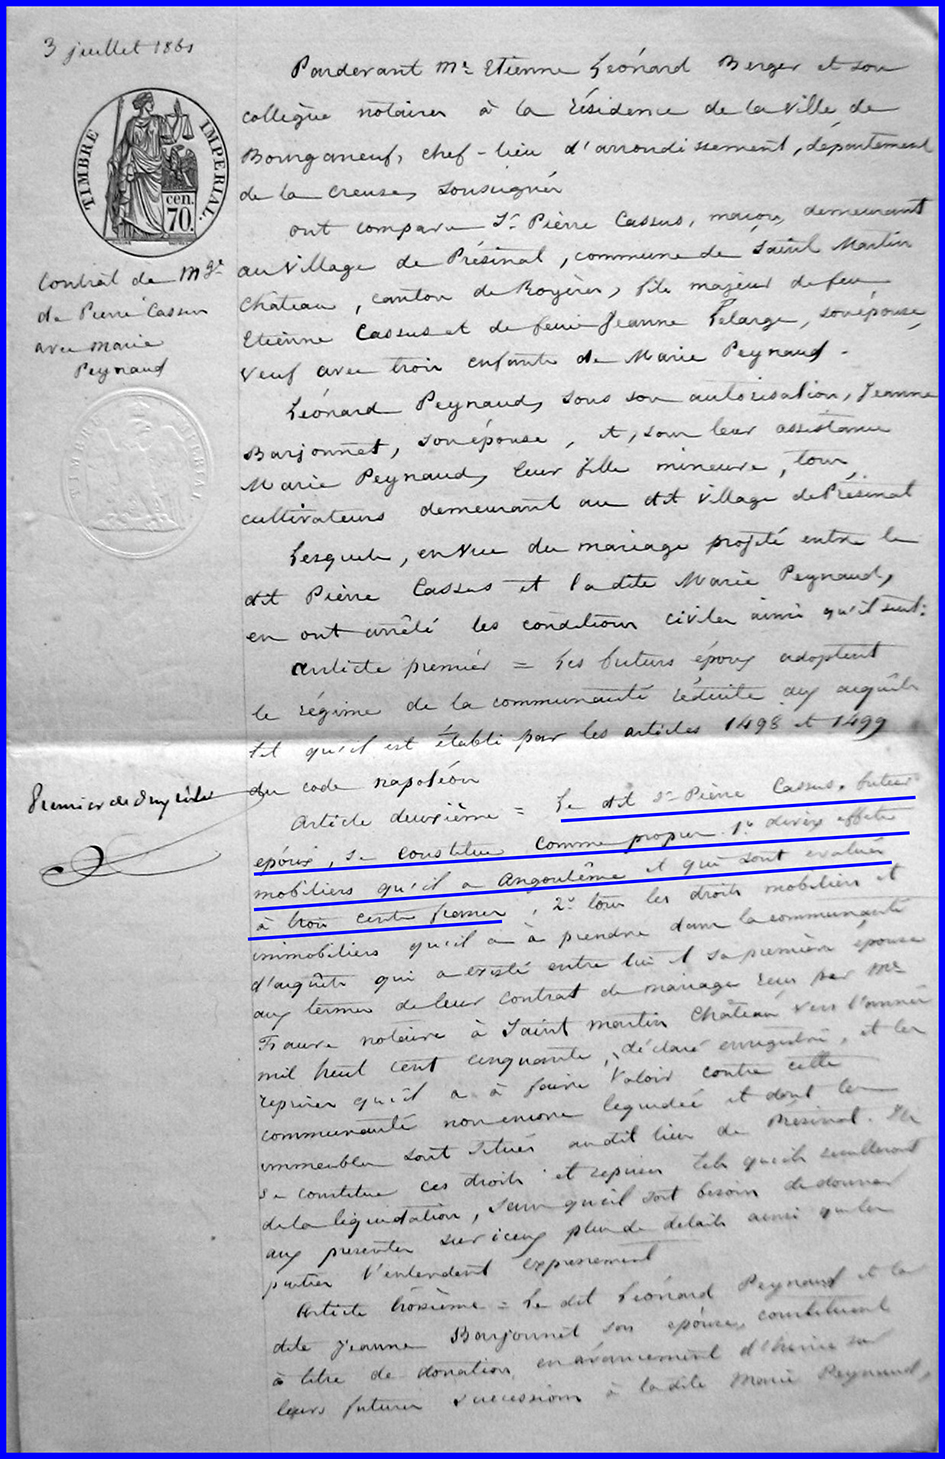 3 juillet 1861
TIMBRE IMPERIAL
cen.
70.
Contrat de Mge
de Pierre Cassus
avec Marie
Peynaud
Pardevant Me Etienne Léonard Berger et son
collègue notaires à la résidence de la ville de
Bourganeuf, chef-lieu d'arrondissement, département
de la Creuse, soussignés
ont comparu Sr Pierre Cassus, maçon, demeurant
au village de Présinat, commune de Saint Martin
Château, canton de Royères, fils majeur de feu
Etienne Cassus et de feue Jeanne Lelarge, son épouse,
veuf avec trois enfants de Marie Peynaud.
Léonard Peynaud, sous son autorisation, Jeanne
Barjonnet, son épouse, et, sous leur assistance
Marie Peynaud, leur fille mineure, tous
cultivateurs demeurant au dit village de Présinat
Lesquels, en vue du mariage projeté entre le
dit Pierre Cassus et la dite Marie Peynaud,
en ont arrêté les conditions civiles ainsi qu'il suit:
Article premier = Les futurs époux adoptent
le régime de la communauté réduite aux acquêts
tel qu'il est établi par les articles 1498 et 1499
du code napoléon
Premier
Article deuxième = Le dit Sr Pierre Cassus, futur
époux, se constitue comme propres 1° divers effets
mobiliers qu'il a Angoulême et qui sont évalués
à trois cents francs, 2° tous les droits mobiliers et
immobiliers qu'il a à prendre dans la communauté
d'acquêts qui a existé entre lui et sa première épouse
aux termes de leur contrat de mariage reçu par Me
Fraure notaire à Saint Martin Château vers l'année
mil huit cent cinquante, déclaré enregistré, et les
reprises qu'il a à faire valoir contre cette
communauté non encore liquidée et dont les
immeubles sont situés audit lieu de Présinat. Il
se constitue ces droits et reprises tels qu'ils résulteront
de la liquidation, sans qu'il soit besoin de donner
aux présentes sur iceux plus de détails ainsi que les
parties l'entendent expressément
Article troisième = Le dit Léonard Peynaud et la
dite Jeanne Barjonnet son épouse, constituent
à titre de donation, en avancement d'hoirie sur
leurs futures successions à la dite Marie Peynaud,